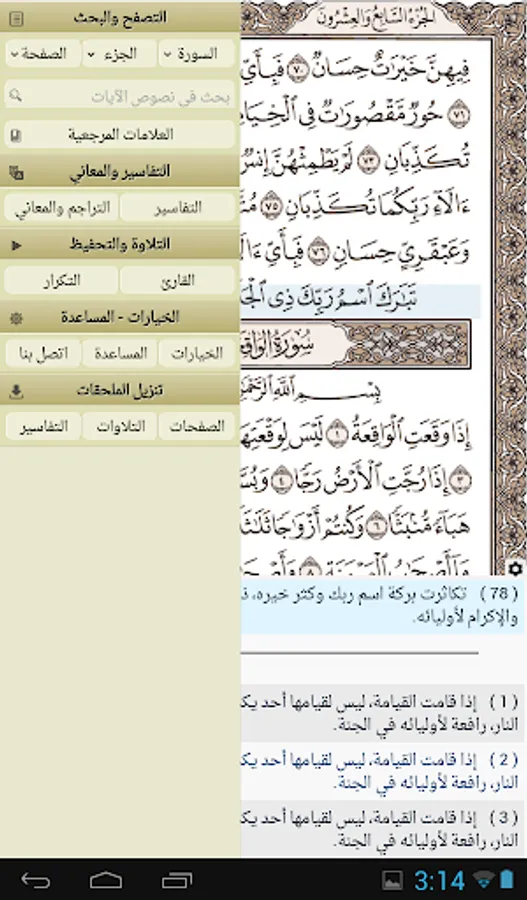 التصفح والبحث
السورة الجزء الصفحة
بحث في نصوص الآيات
العلامات المرجعية
التفاسير والمعاني
التفاسير التراجم والمعاني
التلاوة والتحفيظ
القارئ التكرار
الخيارات - المساعدة
الخيارات المساعدة اتصل بنا
تنزيل الملحقات
الصفحات التلاوات التفاسير
الجزء السابع والعشرون
فِيهِنَّ خَيْرَاتٌ حِسَانٌ ٧٠ فَبِأَيِّ
٧١ حُورٌ مَّقْصُورَاتٌ فِي الْخِيَا
تُكَذِّبَانِ ٧٣ لَمْ يَطْمِثْهُنَّ إِنسٌ
ءَالَاءِ رَبِّكُمَا تُكَذِّبَانِ ٧٥
وَعَبْقَرِيٍّ حِسَانٍ ٧٦ فَبِأَيِّ ءَالَا
تَبَارَكَ اسْمُ رَبِّكَ ذِي الْجَ
سُورَةُ الوَاقِ
بِسْمِ اللَّهِ الرَّحْمَ
إِذَا وَقَعَتِ الْوَاقِعَةُ ١ لَيْسَ لِوَقْعَتِهَا
٣ إِذَا رُجَّتِ الْأَرْضُ رَجًّا ٤ وَبُسَّ
هَبَاءً مُّنبَثًّا ٦ وَكُنتُمْ أَزْوَاجًا ثَلَاثَ
( 78 ) تكاثرت بركة اسم ربك وكثر خيره،
والإكرام لأوليائه.
( 1 ) إذا قامت القيامة، ليس لقيامها أحد يك
النار، رافعة لأوليائه في الجنة.
( 2 ) إذا قامت القيامة، ليس لقيامها أحد يك
النار، رافعة لأوليائه في الجنة.
( 3 ) إذا قامت القيامة، ليس لقيامها أحد يك
النار، رافعة لأوليائه في الجنة.
3:14